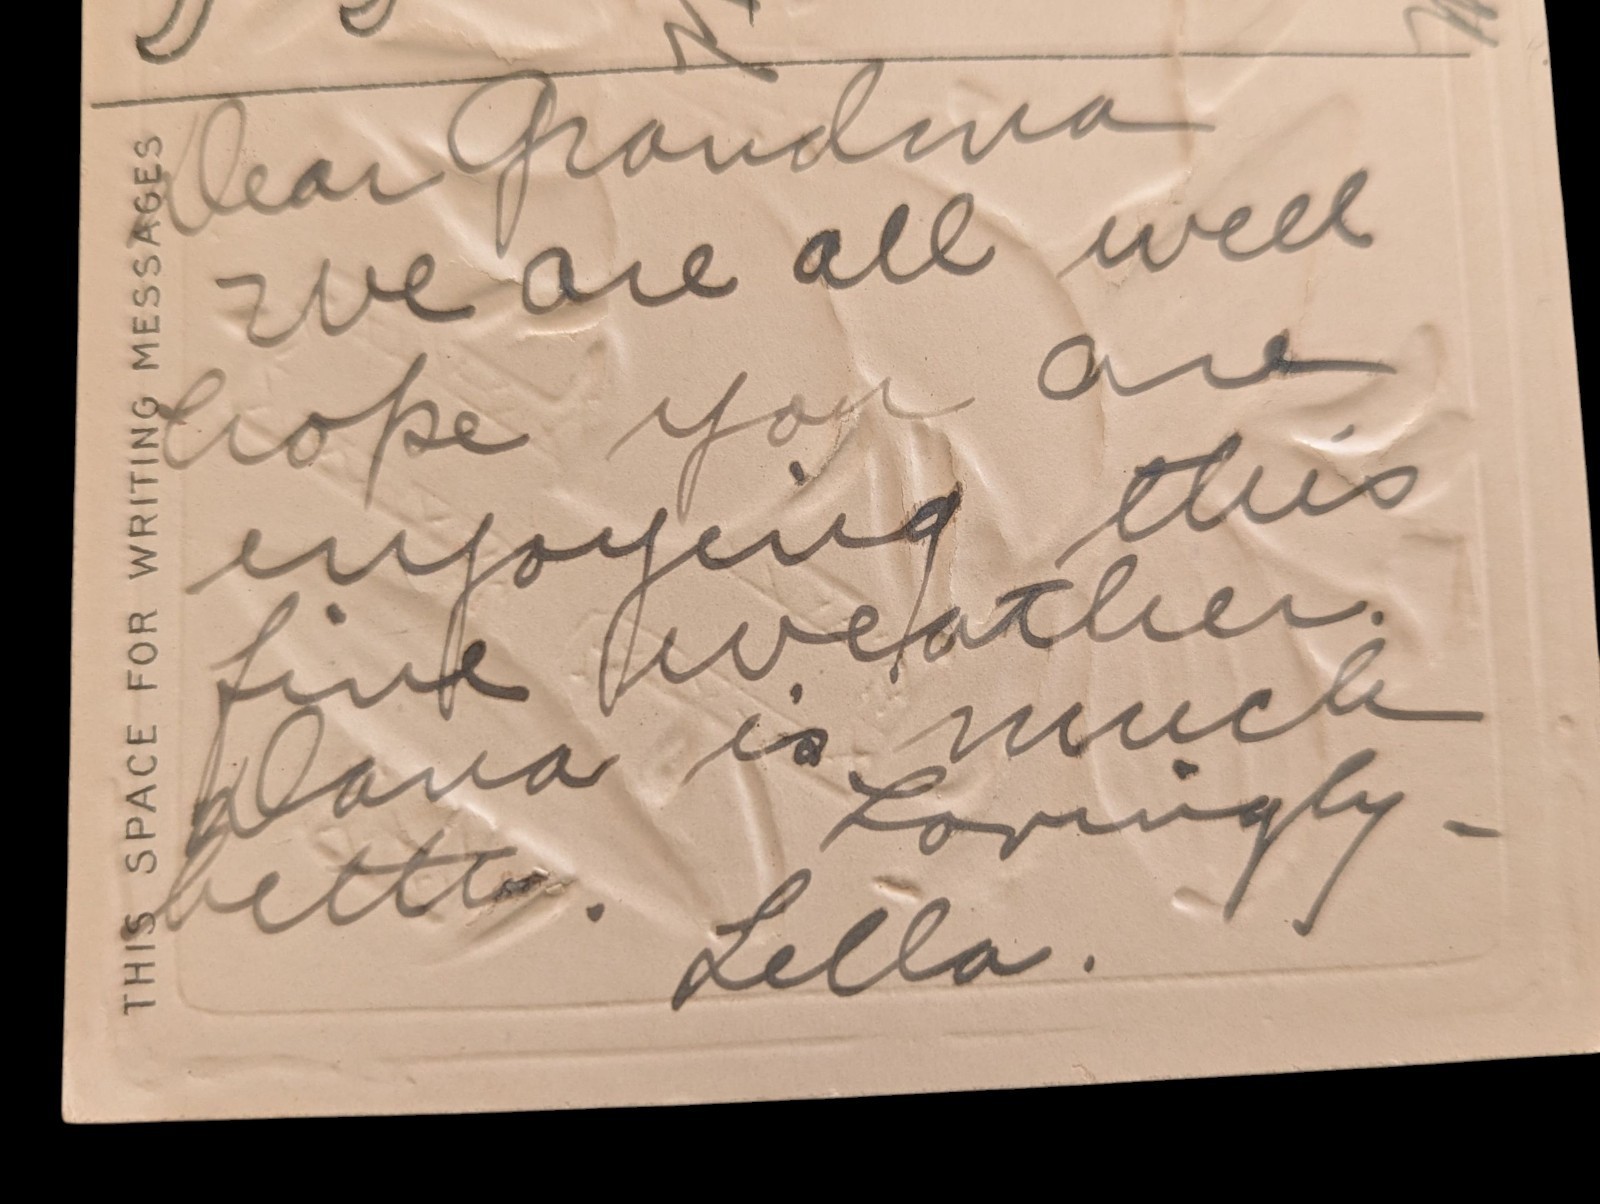 Dear Grandma
We are all well
hope you are
enjoying this
fine weather.
Dana is much
better.
Lovingly -
Lella.
THIS SPACE FOR WRITING MESSAGES